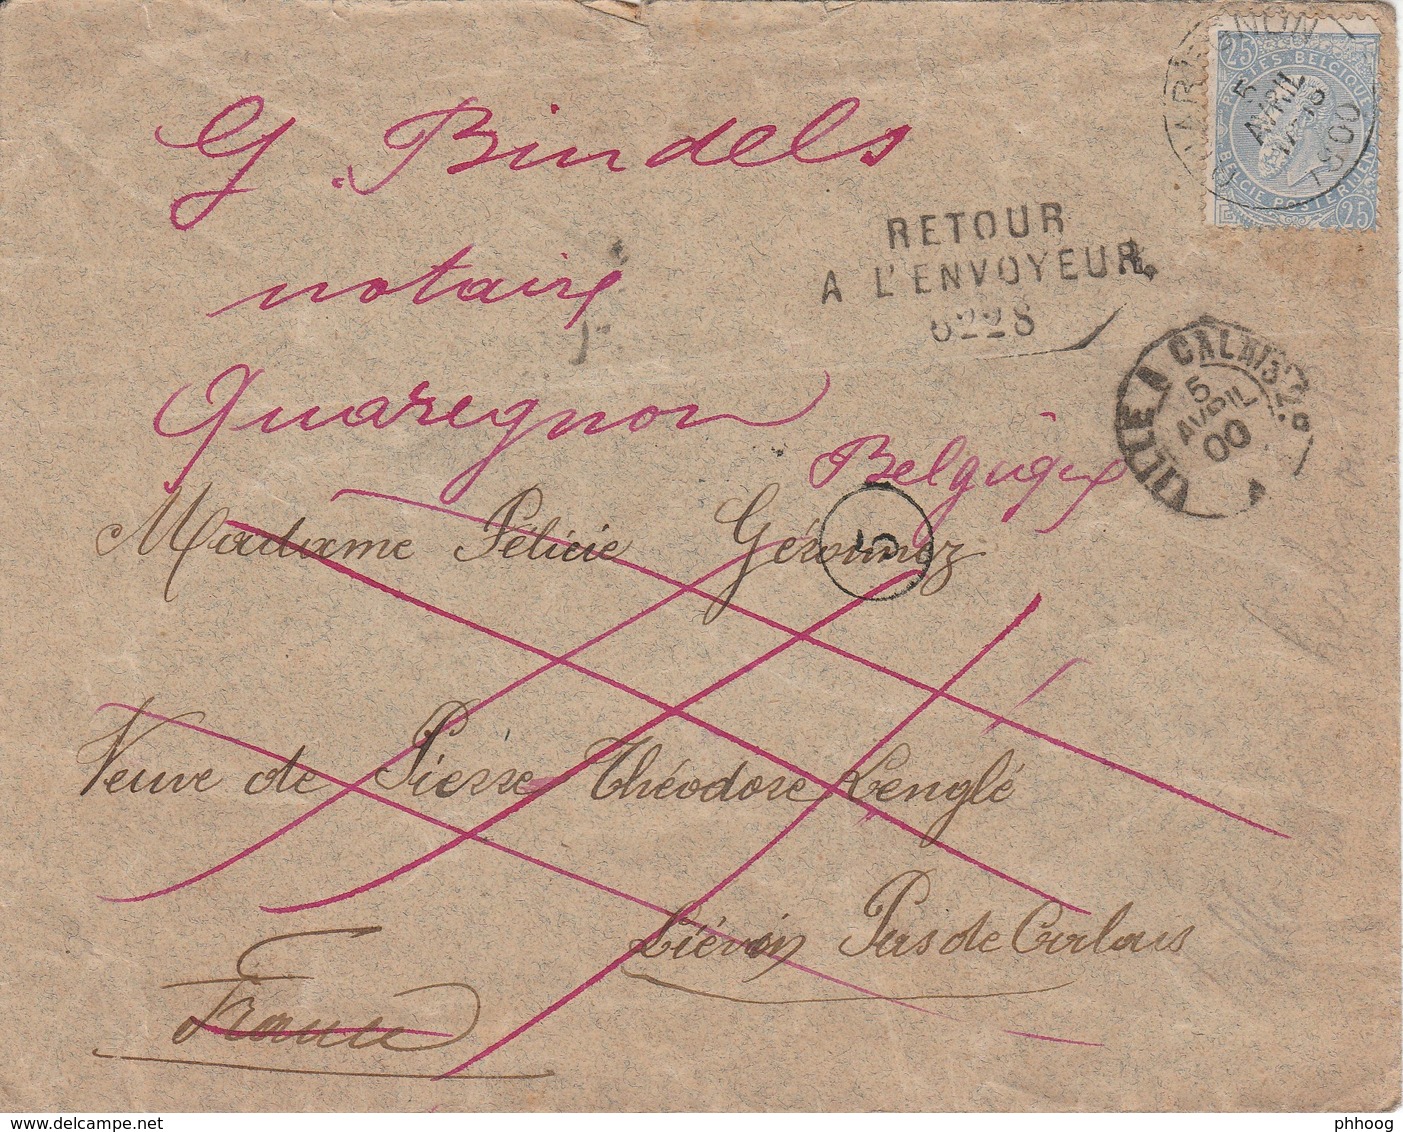 QUAREGNON
5
AVRIL
1900
25 25
POSTES BELGIQUE
BELGIE POSTERIJEN
G. Bindels
notaire
Quaregnon
Belgique
RETOUR
A L'ENVOYEUR
6228
LILLE A CALAIS 2º
5
AVRIL
00
5
Madame Félicie Géronnez
Veuve de Pierre Théodore Lenglé
Liévin Pas de Calais
France
www.delcampe.net
phhoog